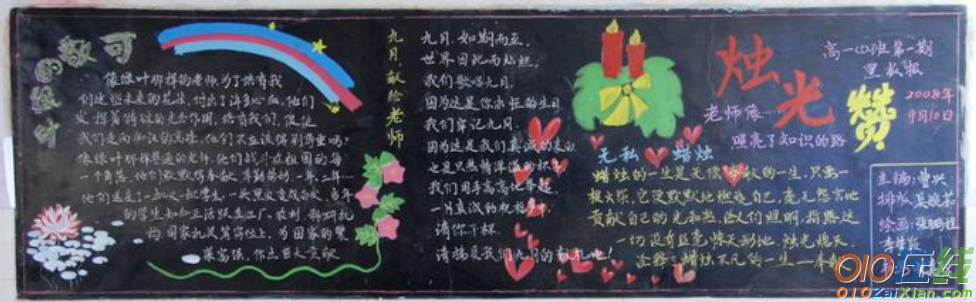 可敬的绿叶
像绿叶那样的老师，为了培育我
们这些未来的花朵，付出了许多心血，他们
发挥着特殊的光合作用，培育我们，促使
我们走向知识的高峰，他们不应该得到尊重吗？
像绿叶那样普通的老师，他们战斗在祖国的每
一个角落，他们默默得奉献，辛勤劳动，一年，二年…
他们送走了一批又一批学生，一头黑发变成白发，当年
的学生如今正活跃在工厂、农村、科研机
构、国家机关等岗位上，为国家的繁
荣富强，作出巨大贡献
九月献给老师
九月，如期而至，
世界因此而灿烂，
我们歌唱九月，
因为这是你永恒的生日
我们牢记九月，
因为这是我们真诚的表白
也是只热情洋溢的
我们用手高高地举起
一片真诚的祝福
请你干杯，
请接受我们九月的献礼吧！
无私 蜡烛
蜡烛的一生是无偿奉献的一生，只需一
根火柴，它便默默地燃烧自己，毫无怨言地
贡献自己的光和热，给人们照明，指路，这
一切没有丝毫惊天动地，烛光熄灭，
蜡烛不凡的一生
烛光赞
老师像…
照亮了知识的路
高一(2)班第一期
黑板报
2008年
9月10日
主编：曹兴
排版：吴
绘画：张
010在线
010ZaiXian.com